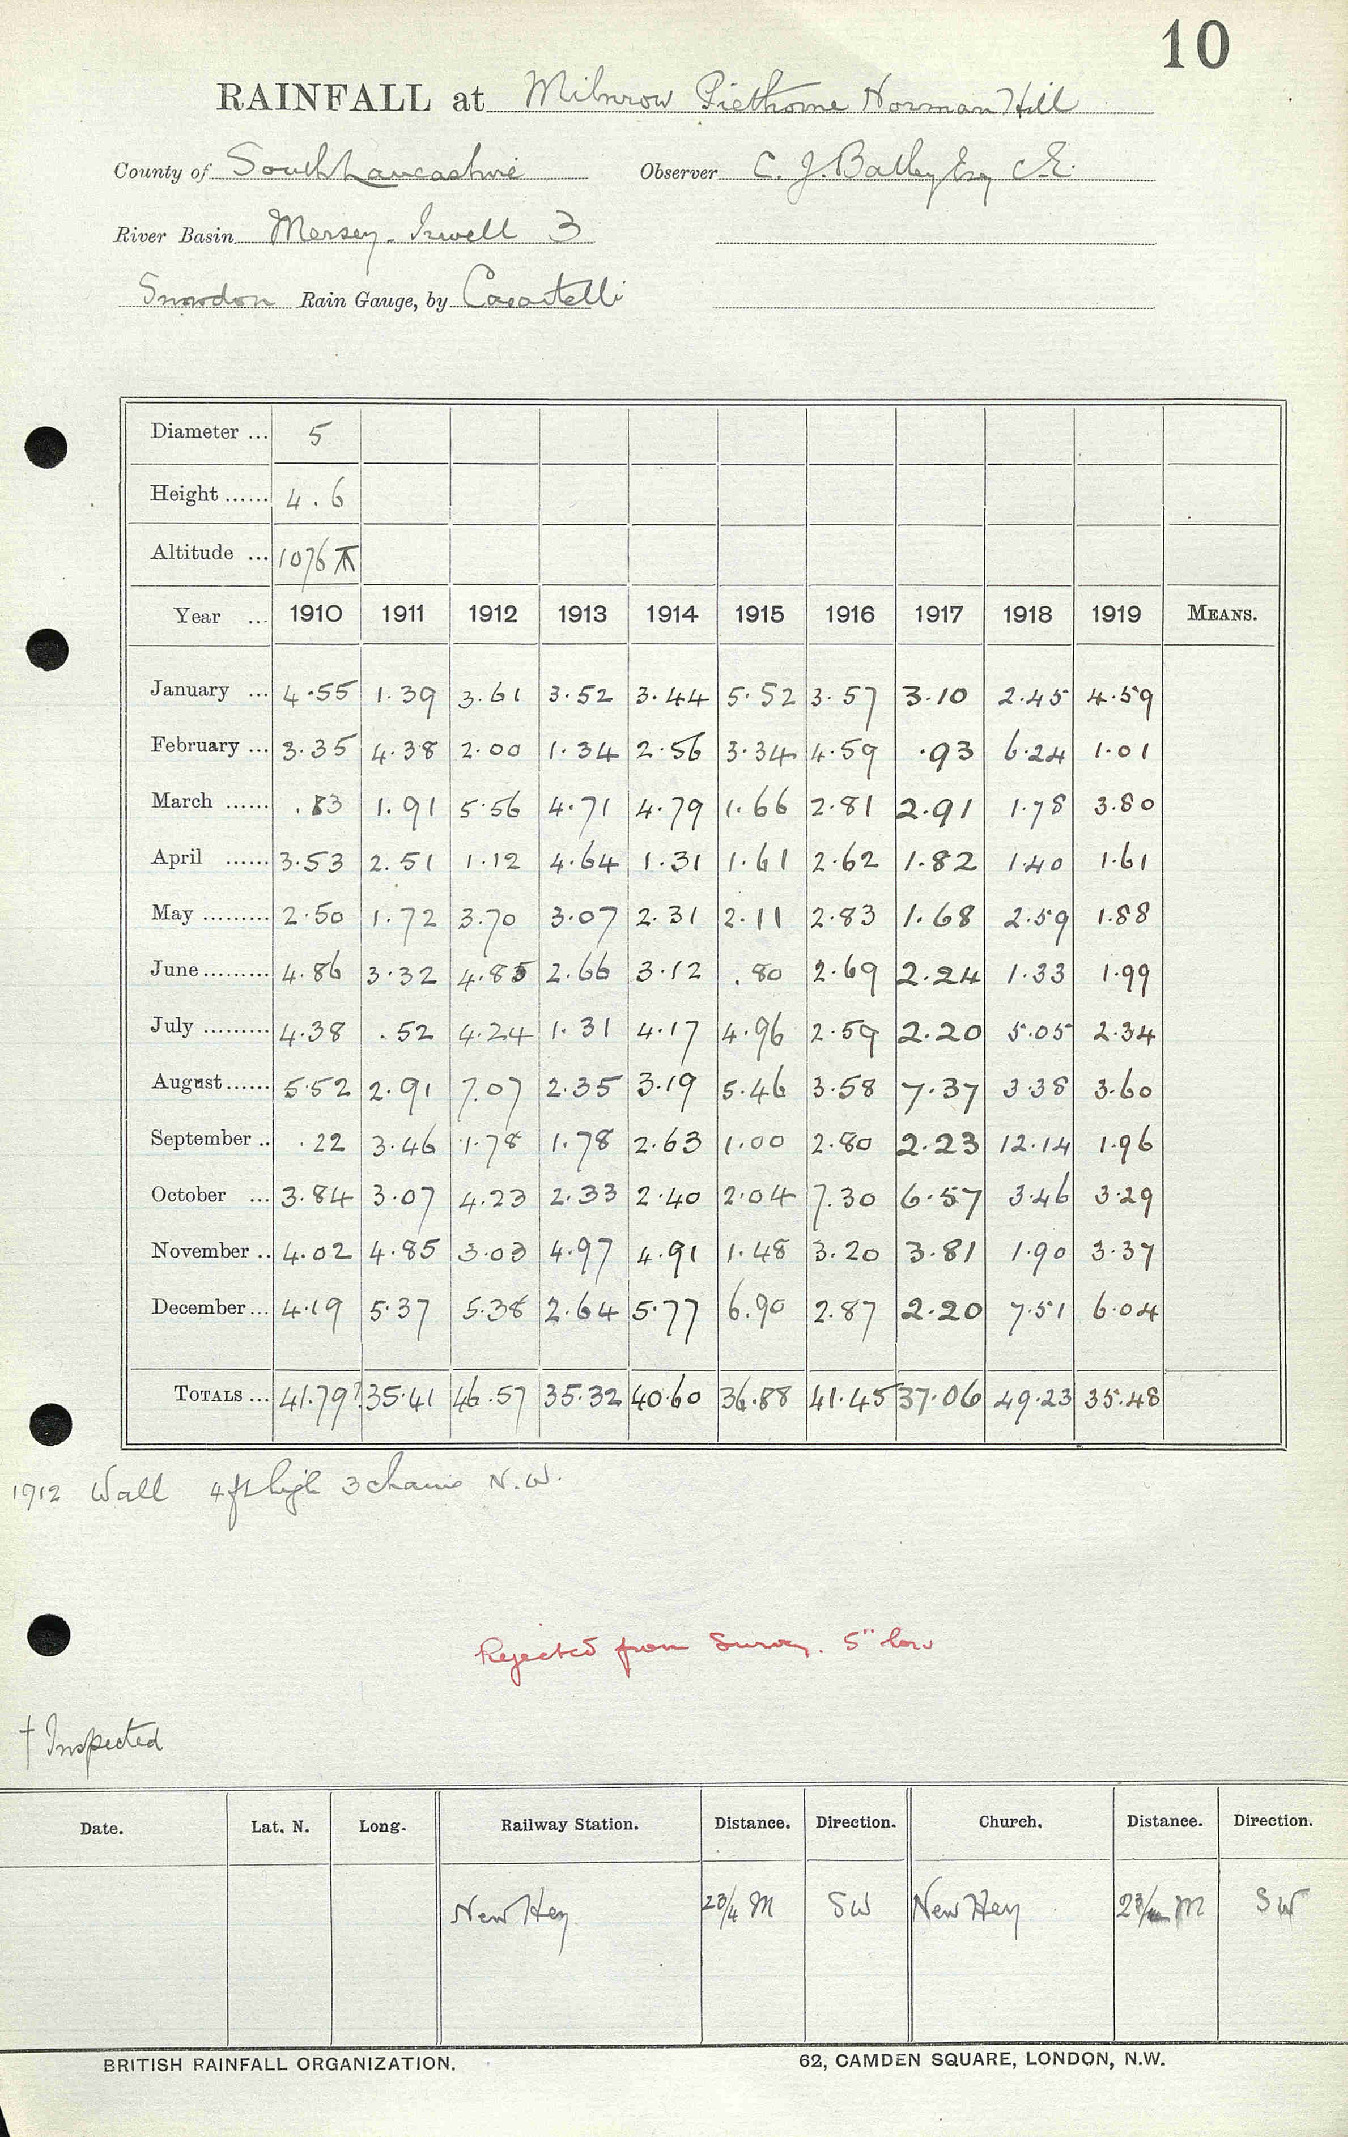 10
RAINFALL at Milnrow Piethorne Norman Hill
County of South Lancashire Observer C. J. Batley Esq C.E.
River Basin Mersey - Irwell 3
Snowdon Rain Gauge, by Casartelli
Diameter ... 5
Height ...... 4.6
Altitude ... 1076
Year ... 1910 1911 1912 1913 1914 1915 1916 1917 1918 1919 MEANS.
January ... 4.55 1.39 3.61 3.52 3.44 5.52 3.57 3.10 2.45 4.59
February ... 3.35 4.38 2.00 1.34 2.56 3.34 4.59 .93 6.24 1.01
March ...... .83 1.91 5.56 4.71 4.79 1.66 2.81 2.91 1.78 3.80
April ...... 3.53 2.51 1.12 4.64 1.31 1.61 2.62 1.82 1.40 1.61
May ......... 2.50 1.72 3.70 3.07 2.31 2.11 2.83 1.68 2.59 1.88
June ......... 4.86 3.32 4.85 2.66 3.12 .80 2.69 2.24 1.33 1.99
July ......... 4.38 .52 4.24 1.31 4.17 4.96 2.59 2.20 5.05 2.34
August ...... 5.52 2.91 7.07 2.35 3.19 5.46 3.58 7.37 3.38 3.60
September .. .22 3.46 1.78 1.78 2.63 1.00 2.80 2.23 12.14 1.96
October ... 3.84 3.07 4.23 2.33 2.40 2.04 7.30 6.57 3.46 3.29
November .. 4.02 4.85 3.03 4.97 4.91 1.48 3.20 3.81 1.90 3.37
December ... 4.19 5.37 5.38 2.64 5.77 6.90 2.87 2.20 7.51 6.04
TOTALS ... 41.79? 35.41 46.57 35.32 40.60 36.88 41.45 37.06 49.23 35.48
1912 Wall 4 ft high 3 chains N.W.
Rejected from Survey. 5" low
† Inspected
Date. Lat. N. Long. Railway Station. Distance. Direction. Church. Distance. Direction.
New Hey 2 3/4 M SW New Hey 2 3/4 M SW
BRITISH RAINFALL ORGANIZATION. 62, CAMDEN SQUARE, LONDON, N.W.